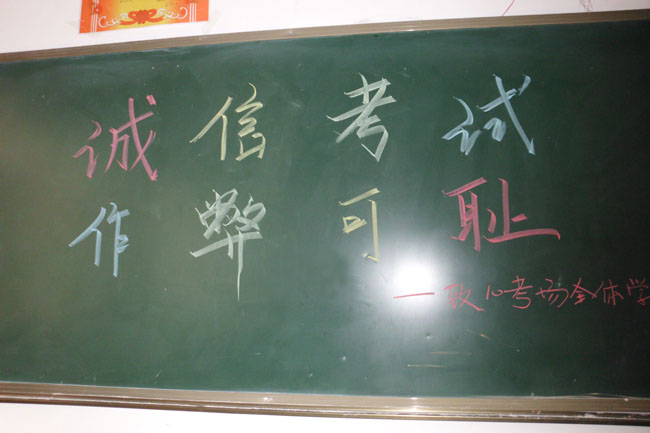 诚信考试
作弊可耻
—致10考场全体学